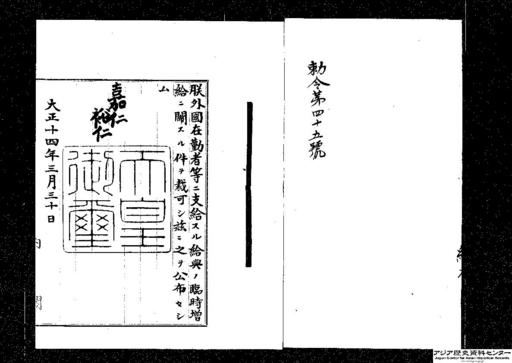 勅令第四十五號
朕外國在勤者等ニ支給スル給與ノ臨時增
給ニ關スル件ヲ裁可シ茲ニ之ヲ公布セシ
ム
嘉仁
裕仁
天皇御璽
大正十四年三月三十日
内閣
アジア歴史資料センター
Japan Center for Asian Historical Records